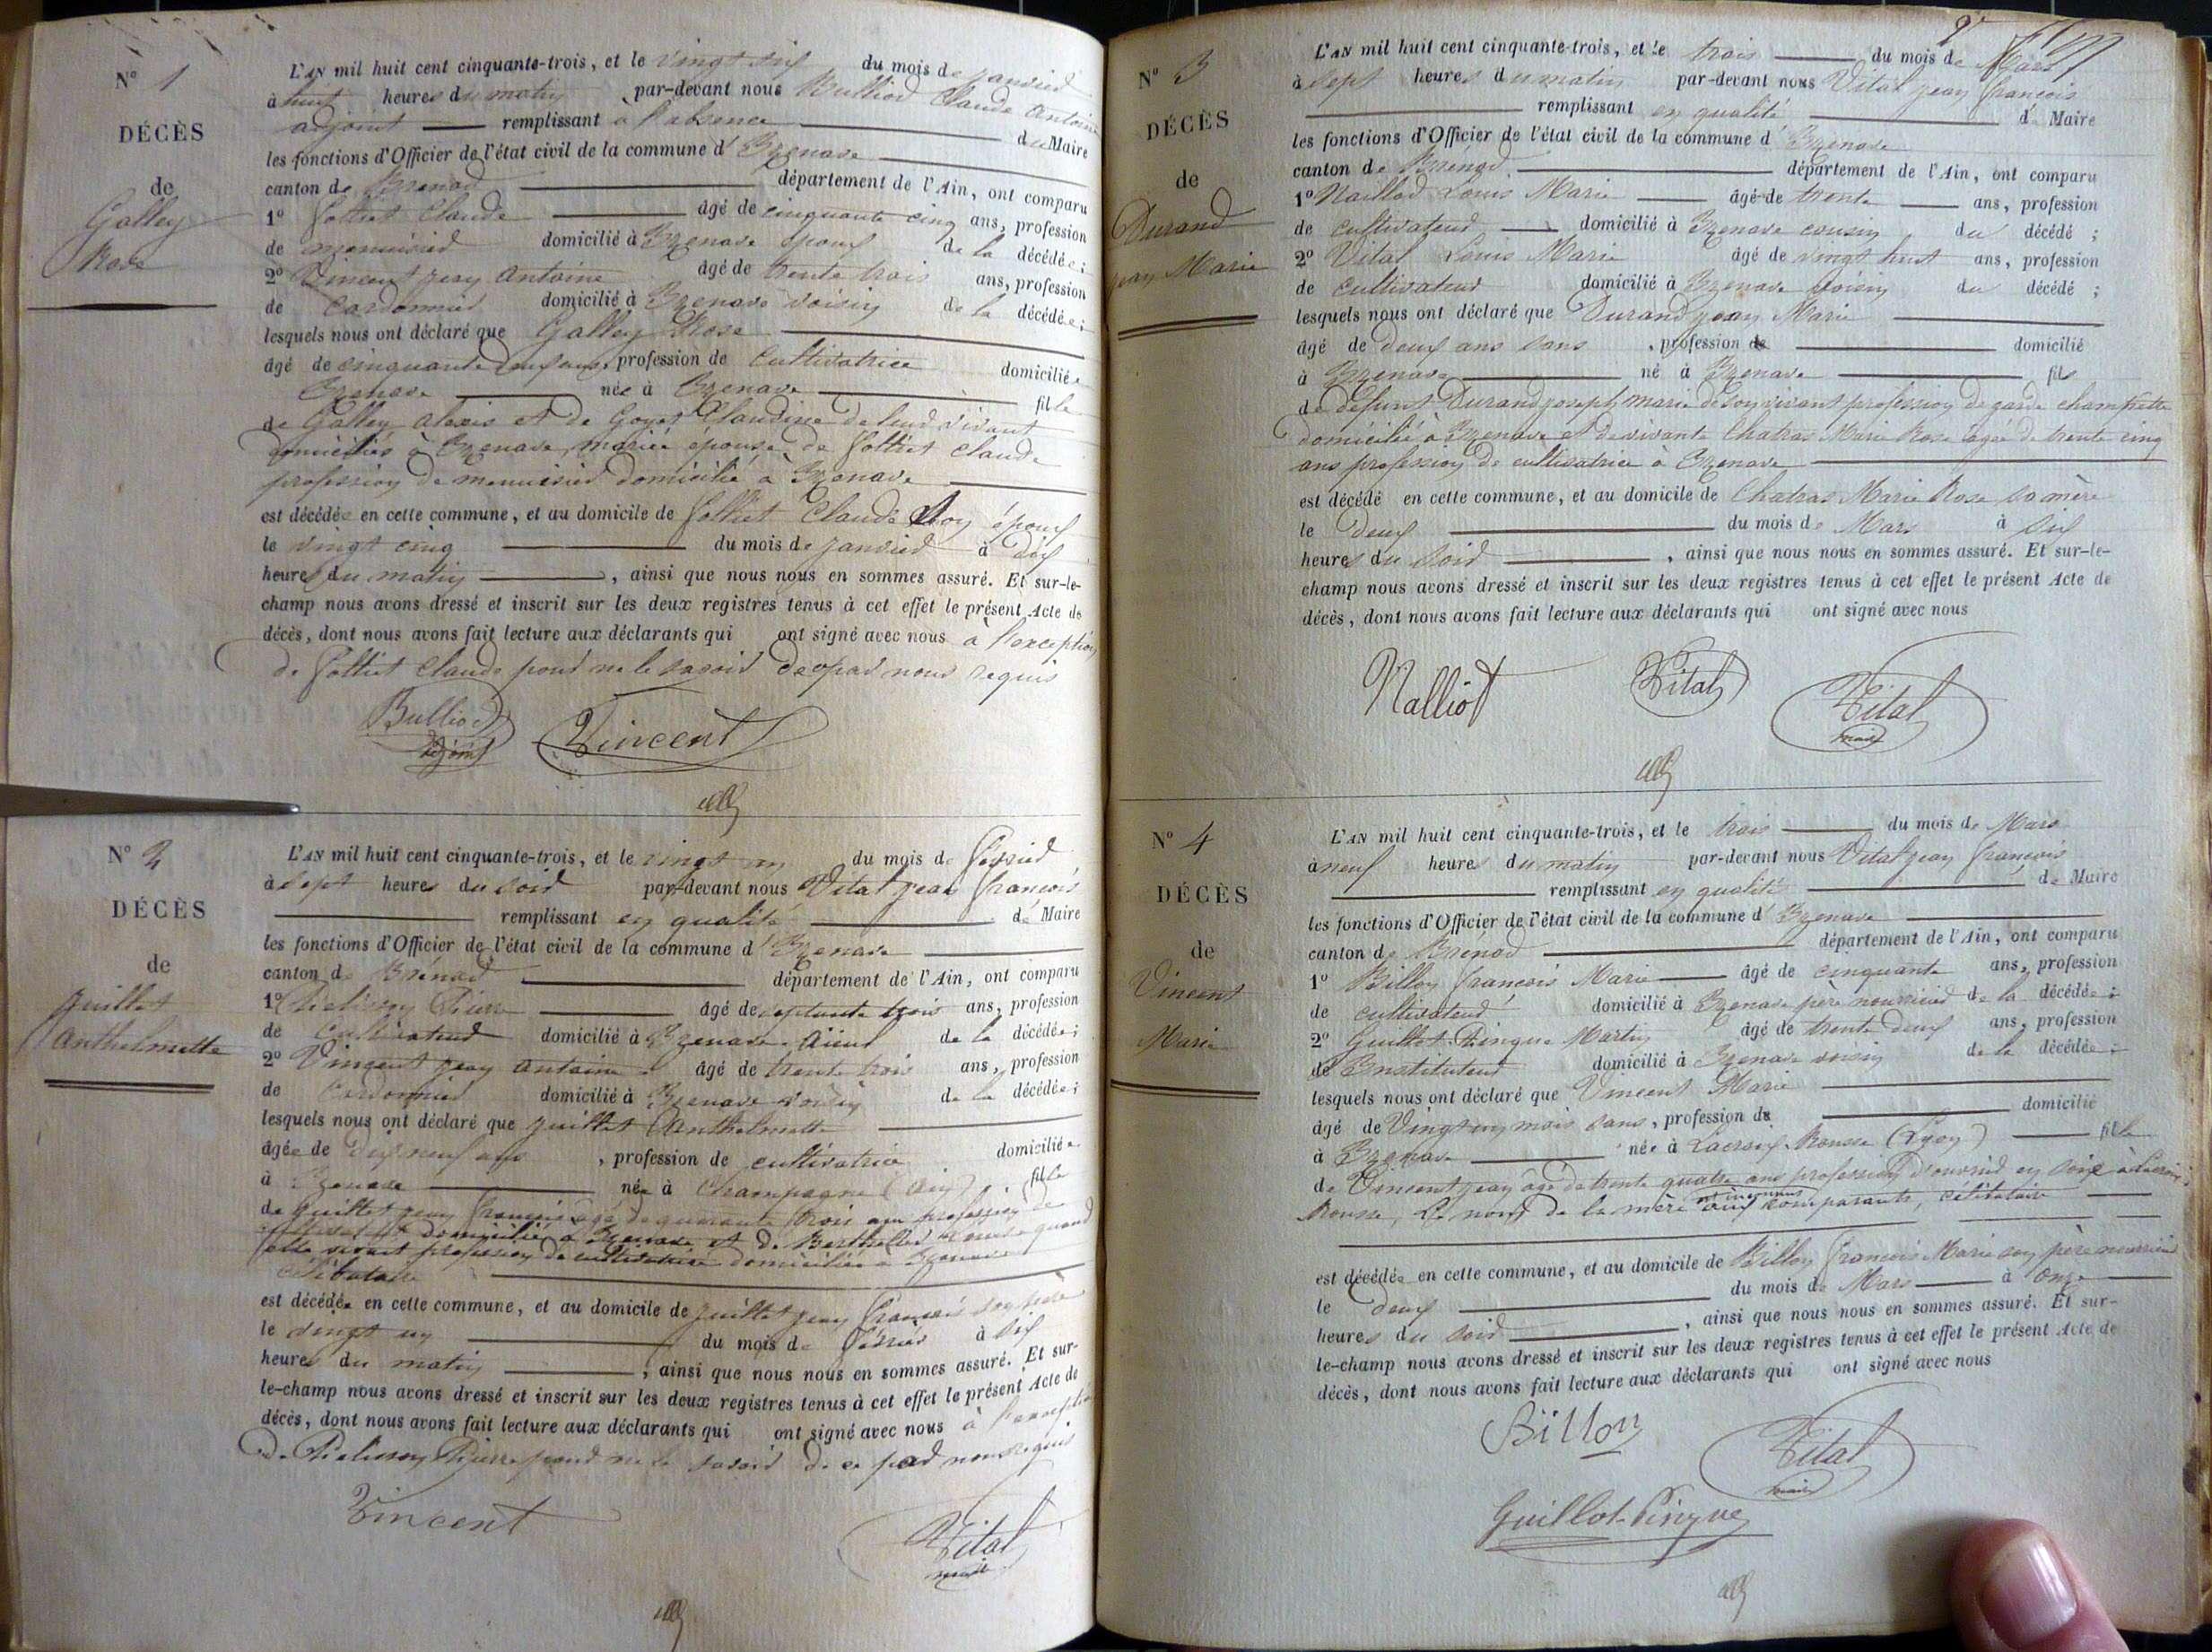 N° 1
DÉCÈS
de
Galley
Rose
L'AN mil huit cent cinquante-trois, et le vingt six du mois de janvier
à huit heures du matin par-devant nous Bulliod Claude Antoine
adjoint remplissant à l'absence du Maire
les fonctions d'Officier de l'état civil de la commune d' Izenave
canton de Brenod département de l'Ain, ont comparu
1° Folliet Claude âgé de cinquante cinq ans, profession
de menuisier domicilié à Izenave époux de la décédée;
2° Vincent jean antoine âgé de trente trois ans, profession
de Cordonnier domicilié à Izenave voisin de la décédée;
lesquels nous ont déclaré que Galley Rose
âgé de cinquante ans, profession de Cultivatrice domiciliée
Izenave née à Izenave fille
de Galley alexis et de Goyet Claudine de leur vivant
domiciliés à Izenave, mariée epouse de Folliet Claude
profession de menuisier domicilié à Izenave
est décédée en cette commune, et au domicile de Folliet Claude son époux
le vingt cinq du mois de janvier à dix
heures du matin, ainsi que nous nous en sommes assuré. Et sur-le-
champ nous avons dressé et inscrit sur les deux registres tenus à cet effet le présent Acte de
décès, dont nous avons fait lecture aux déclarants qui ont signé avec nous à l'exception
de Folliet Claude pour ne le savoir de ce par nous requis
Bulliod Vincent
adjoint
N° 2
DÉCÈS
de
juillet
Anthelmette
L'AN mil huit cent cinquante-trois, et le vingt un du mois de Février
à sept heures du soir par-devant nous Vital jean françois
remplissant en qualité de Maire
les fonctions d'Officier de l'état civil de la commune d' Izenave
canton de Brénod département de l'Ain, ont comparu
1° Pierre âgé de septante trois ans, profession
de Cultivateur domicilié à Izenave Aïeul de la décédée;
2° Vincent jean antoine âgé de trente trois ans, profession
de Cordonnier domicilié à Izenave voisin de la décédée;
lesquels nous ont déclaré que juillet Anthelmette
âgée de dix neuf ans, profession de cultivatrice domiciliée
à Izenave née à Champagne (Ain) fille
de Guillet jean françois âgé de quarante trois ans profession de
domicilié à Izenave et de quand
elle vivait profession de cultivatrice domiciliée à Izenave
célibataire
est décédée en cette commune, et au domicile de juillet jean françois son père
le vingt un du mois de Février à six
heures du matin, ainsi que nous nous en sommes assuré. Et sur-
le-champ nous avons dressé et inscrit sur les deux registres tenus à cet effet le présent Acte de
décès, dont nous avons fait lecture aux déclarants qui ont signé avec nous à l'exception
de Pierre pour ne le savoir de ce par nous requis
Vincent Vital
maire
N° 3
DÉCÈS
de
Durand
jean Marie
L'AN mil huit cent cinquante-trois, et le trois du mois de Mars
à sept heures du matin par-devant nous Vital jean françois
remplissant en qualité de Maire
les fonctions d'Officier de l'état civil de la commune d' Izenave
canton de Brenod département de l'Ain, ont comparu
1° Nalliod Louis Marie âgé de trente ans, profession
de cultivateur domicilié à Izenave cousin du décédé;
2° Vital Louis Marie âgé de vingt huit ans, profession
de cultivateur domicilié à Izenave voisin du décédé;
lesquels nous ont déclaré que Durand jean Marie
âgé de deux ans sans, profession de domicilié
à Izenave né à Izenave fils
de défunt Durand joseph marie de son vivant profession de garde champêtre
domicilié à Izenave et de vivante Chatras Marie Rose âgée de trente cinq
ans profession de cultivatrice à Izenave
est décédé en cette commune, et au domicile de Chatras Marie Rose sa mère
le deux du mois de Mars à six
heures du soir, ainsi que nous nous en sommes assuré. Et sur-le-
champ nous avons dressé et inscrit sur les deux registres tenus à cet effet le présent Acte de
décès, dont nous avons fait lecture aux déclarants qui ont signé avec nous
Nalliot Vital Vital
maire
N° 4
DÉCÈS
de
Vincent
Marie
L'AN mil huit cent cinquante-trois, et le trois du mois de Mars
à neuf heures du matin par-devant nous Vital jean françois
remplissant en qualité de Maire
les fonctions d'Officier de l'état civil de la commune d' Izenave
canton de Brénod département de l'Ain, ont comparu
1° Billon françois Marie âgé de cinquante ans, profession
de cultivateur domicilié à Izenave père nourricier de la décédée;
2° Guillot-Pingue Martin âgé de trente deux ans, profession
de Instituteur domicilié à Izenave voisin de la décédée;
lesquels nous ont déclaré que Vincent Marie
âgé de Vingt un mois sans, profession de domicilié
à Izenave née à Lacroix-Rousse (Lyon) fille
de Vincent jean âgé de trente quatre ans profession d'ouvrier en soie à Lacroix
Rousse, Le nom de la mère est inconnu aux comparants, célibataire
est décédée en cette commune, et au domicile de Billon françois Marie son père nourricier
le deux du mois de Mars à onze
heures du soir, ainsi que nous nous en sommes assuré. Et sur-
le-champ nous avons dressé et inscrit sur les deux registres tenus à cet effet le présent Acte de
décès, dont nous avons fait lecture aux déclarants qui ont signé avec nous
Billon Vital
maire
Guillot-Pingue